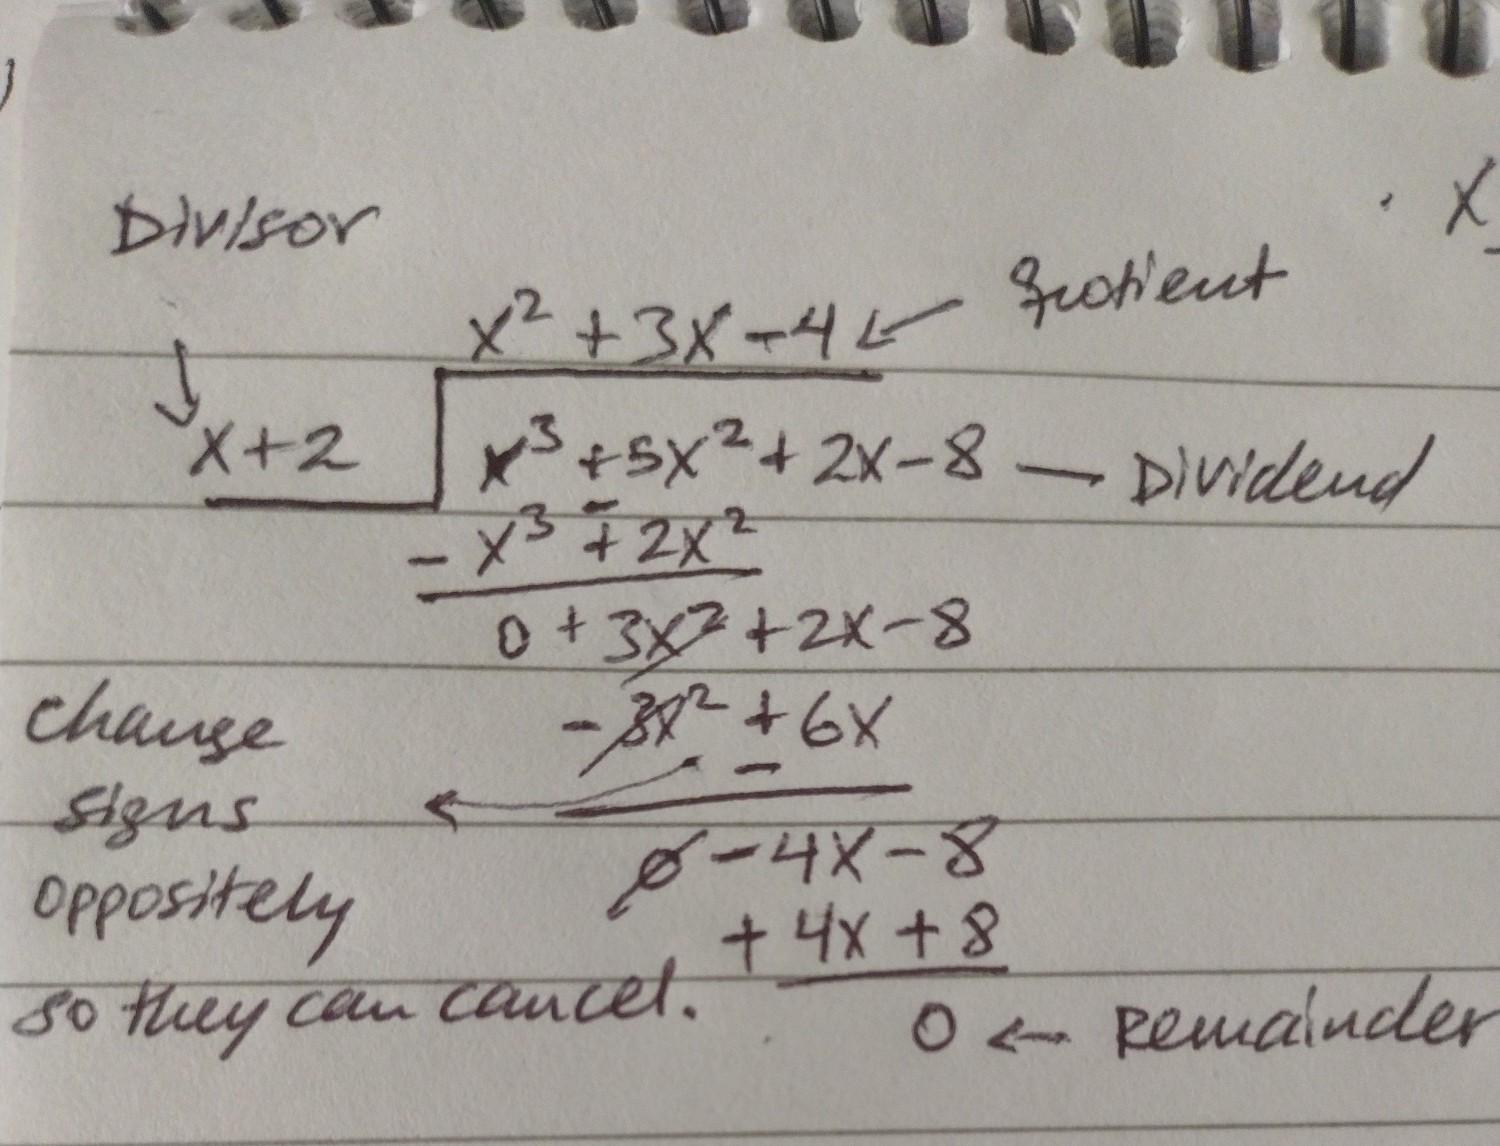 Divisor
x² + 3x - 4 ← Quotient
x + 2
x³ + 5x² + 2x - 8 — Dividend
- x³ + 2x²
-
0 + 3x² + 2x - 8
- 3x² + 6x
-
change
signs
oppositely
so they can cancel.
0 - 4x - 8
+ 4x + 8
0 ← Remainder
x